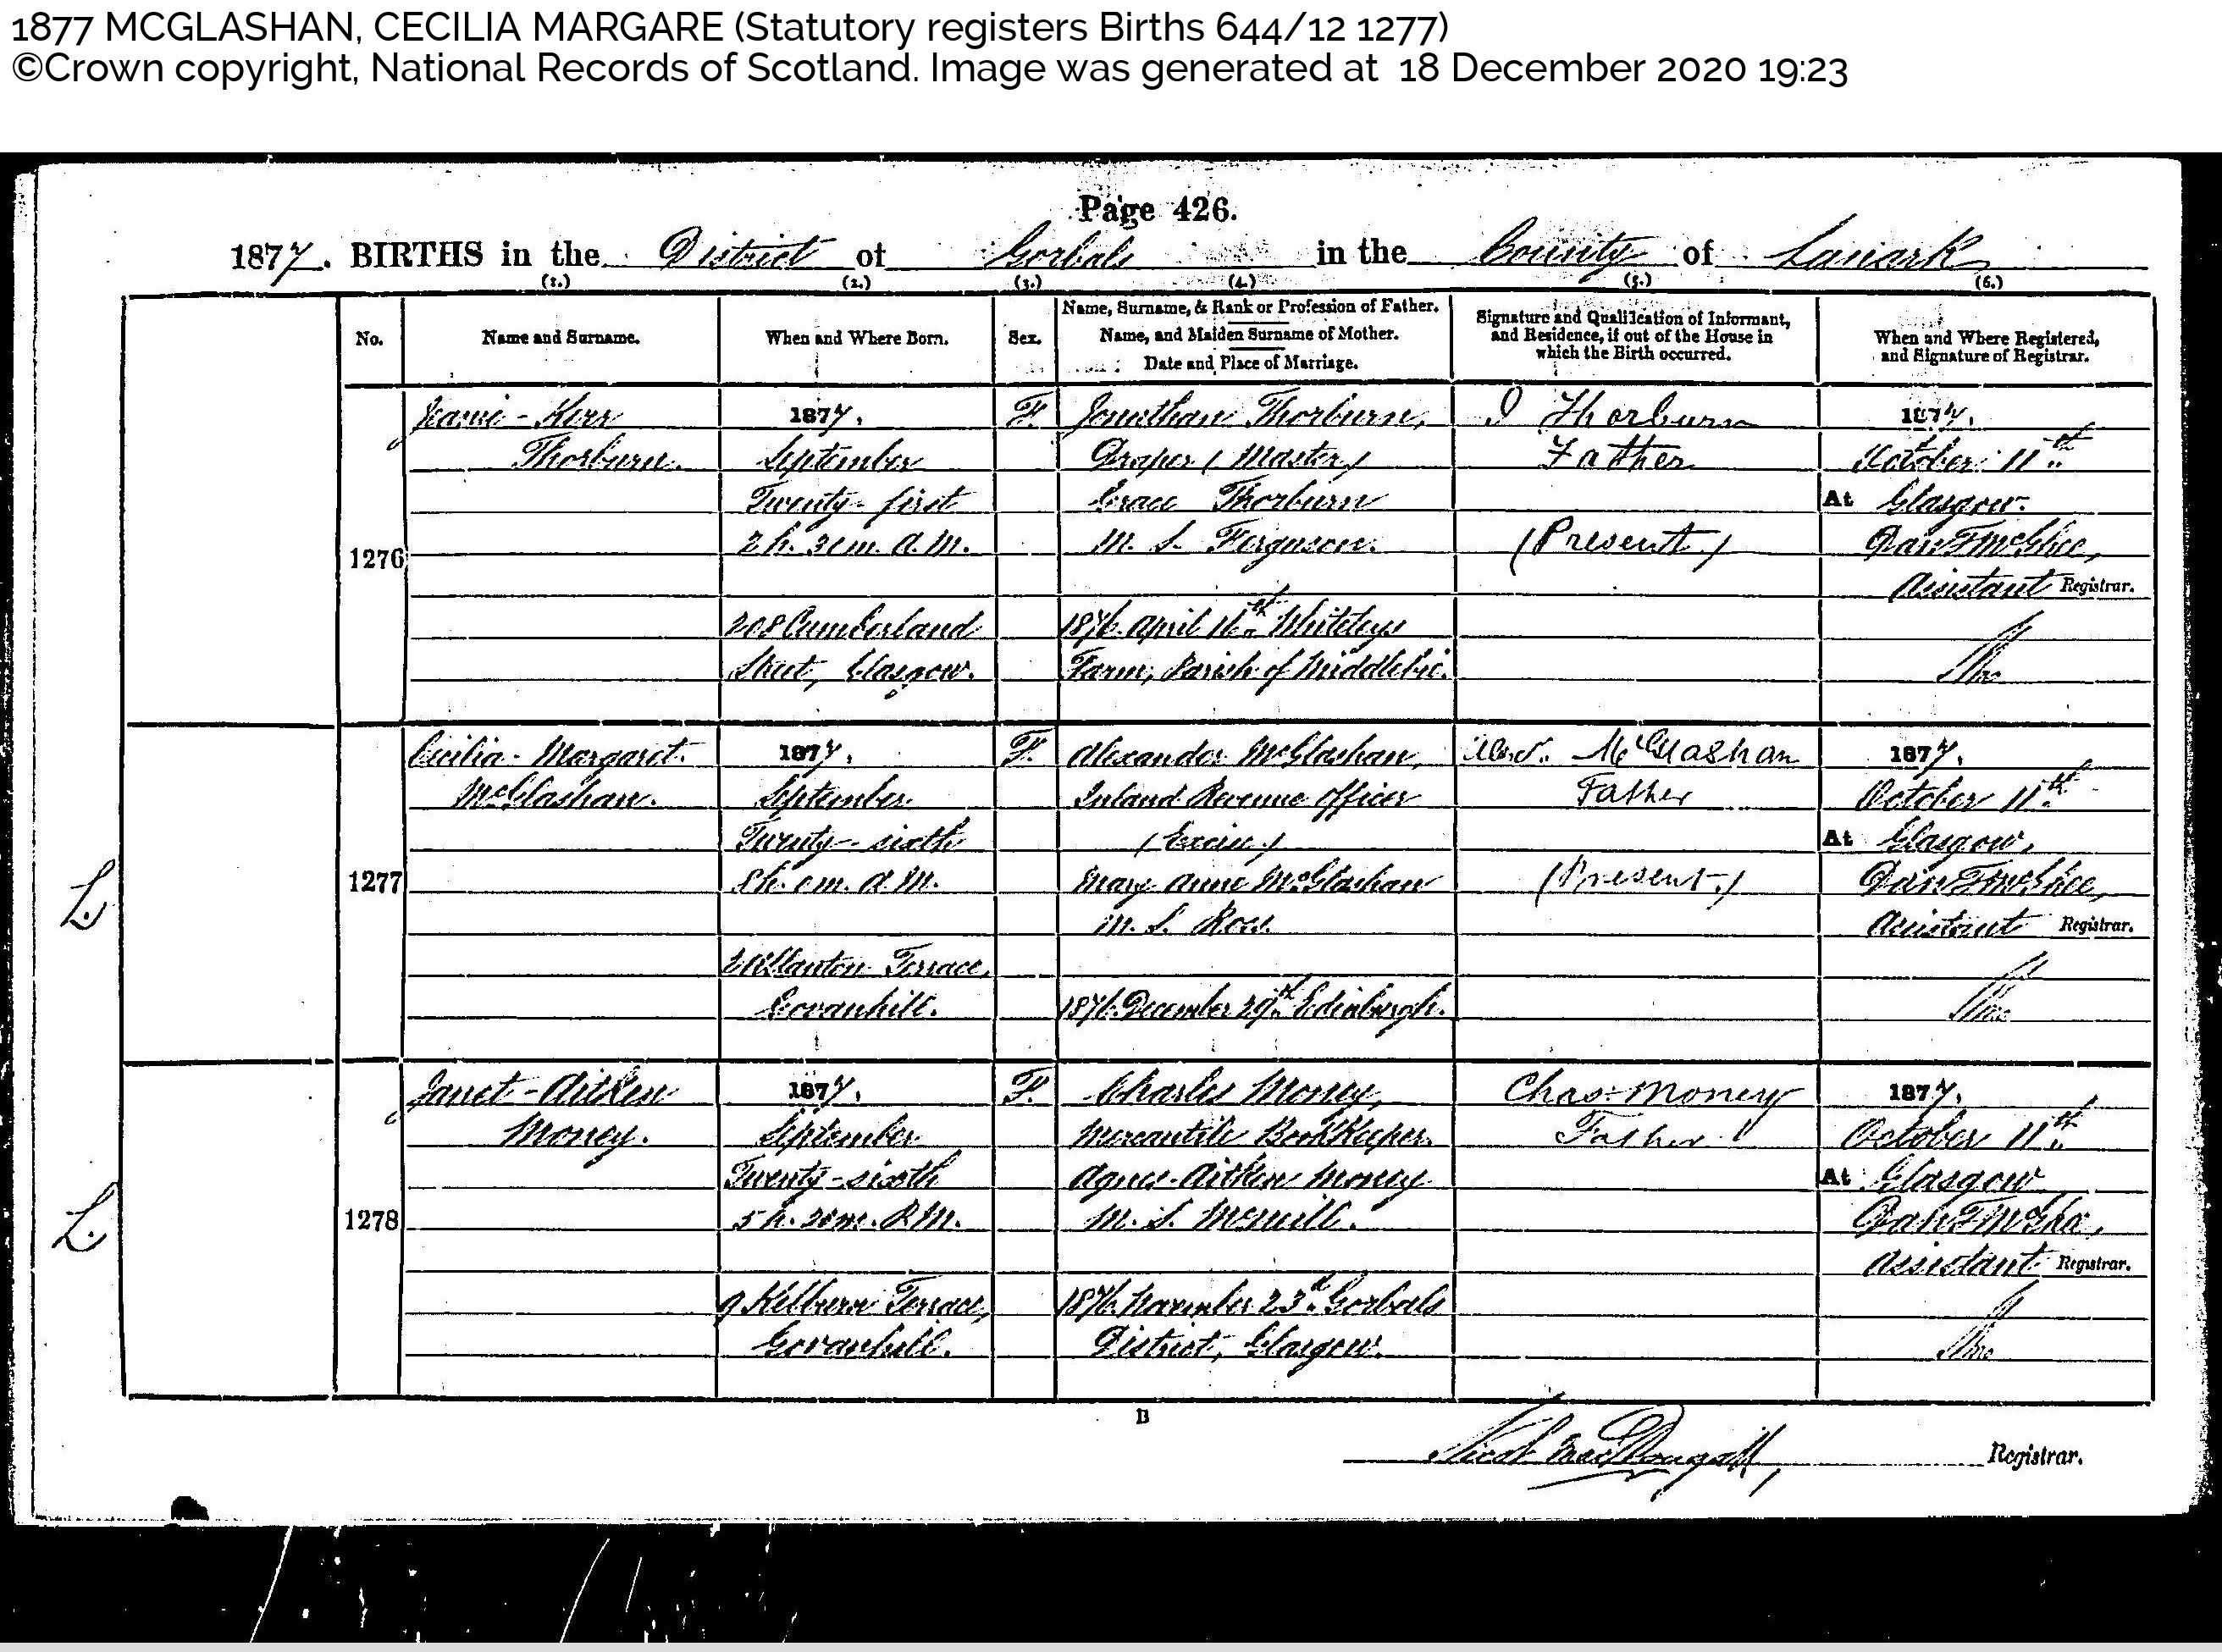 1877 MCGLASHAN, CECILIA MARGARE (Statutory registers Births 644/12 1277)
©Crown copyright, National Records of Scotland. Image was generated at 18 December 2020 19:23
Page 426.
1877. BIRTHS in the District of Gorbals in the County of Lanark
(1.) (2.) (3.) (4.) (5.) (6.)
No.
Name and Surname.
When and Where Born.
Sex.
Name, Surname, & Rank or Profession of Father.
Name, and Maiden Surname of Mother.
Date and Place of Marriage.
Signature and Qualification of Informant,
and Residence, if out of the House in
which the Birth occurred.
When and Where Registered,
and Signature of Registrar.
1276
Kerr
Thorburn.
1877.
September
Twenty-first
2 h. m. A.M.
208 Cumberland
Street, Glasgow.
F.
Jonathan Thorburn,
Draper (Master)
Grace Thorburn
M. S. Ferguson.
1876. April 16th
Farm, Parish of Middlebie.
Thorburn
Father
(Present)
1877.
October 11th
At Glasgow.
Assistant Registrar.
L.
1277
Cecilia-Margaret
McGlashan.
1877.
September
Twenty-sixth
h. m. A.M.
Terrace,
Govanhill.
F.
Alexander McGlashan,
Inland Revenue Officer
(Excise)
Mary Anne McGlashan
M. S. Ross.
1876. December 29th Edinburgh.
McGlashan
Father
(Present)
1877.
October 11th
At Glasgow.
Assistant Registrar.
L.
1278
Janet-Aitken
Money.
1877.
September
Twenty-sixth
5 h. m. P.M.
9 Kelburne Terrace,
Govanhill.
F.
Charles Money,
Mercantile Bookkeeper.
Agnes Aitken Money
M. S. McNeill.
1876. November 23d Gorbals
District, Glasgow.
Chas. Money
Father
1877.
October 11th
At Glasgow
Assistant Registrar.
B
MacDougall, Registrar.